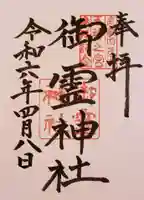 奉拝
御霊神社
令和六年四月八日